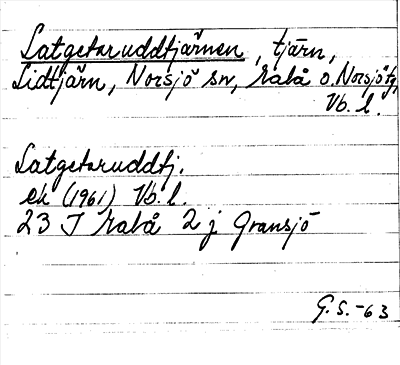 Latgetaruddtjärnen, tjärn,
Lidtjärn, Norsjö sn, Malå o. Norsjö tg,
Vb. l.
Latgetaruddtj.
ek (1961) Vb. l.
23 J Malå 2 j Gransjö
G. S. -63